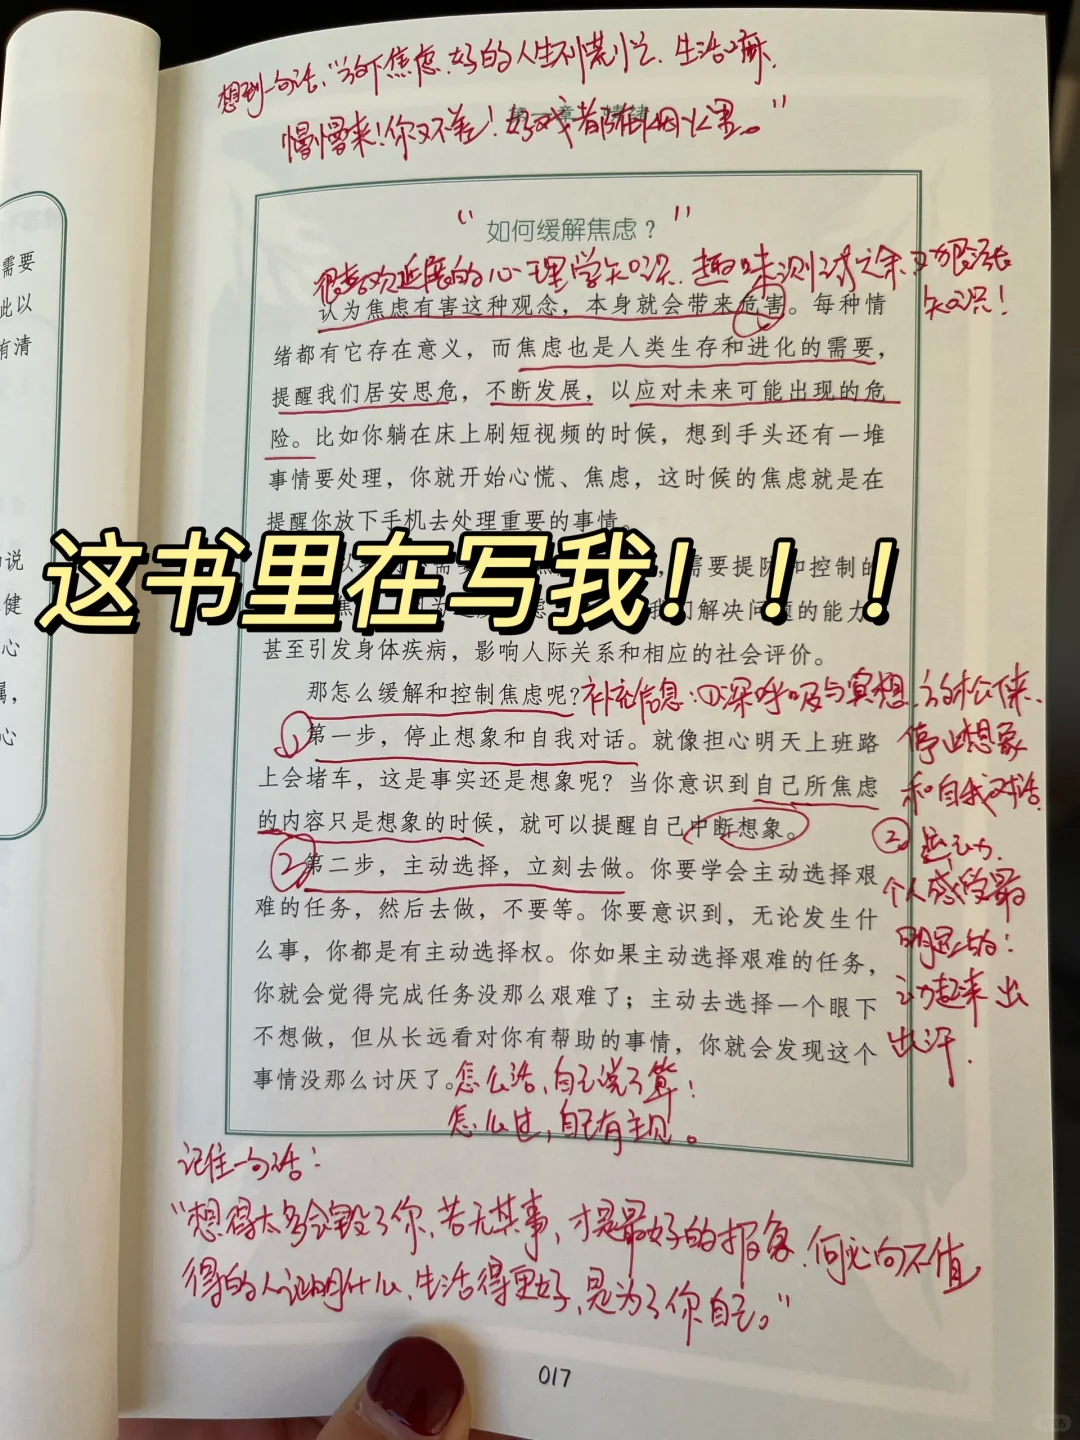 想到一句话，"放下焦虑，好的人生不慌忙，生活嘛，
慢慢来！你又不差！好戏都在烟火里。"
第一章 情绪
"如何缓解焦虑？"
很喜欢延展的心理学知识，趣味测试之余，又很涨
知识！
认为焦虑有害这种观念，本身就会带来危害。每种情
绪都有它存在意义，而焦虑也是人类生存和进化的需要，
提醒我们居安思危，不断发展，以应对未来可能出现的危
险。比如你躺在床上刷短视频的时候，想到手头还有一堆
事情要处理，你就开始心慌、焦虑，这时候的焦虑就是在
提醒你放下手机去处理重要的事情。
这书里在写我！！！
需要提防和控制的
我们解决问题的能力
甚至引发身体疾病，影响人际关系和相应的社会评价。
那怎么缓解和控制焦虑呢？
补充信息：①深呼吸与冥想，放松下来、
停止想象
和自我对话。
①第一步，停止想象和自我对话。就像担心明天上班路
上会堵车，这是事实还是想象呢？当你意识到自己所焦虑
的内容只是想象的时候，就可以提醒自己中断想象。
②运动，
个人感受最
明显的：
动起来出
出汗.
②第二步，主动选择，立刻去做。你要学会主动选择艰
难的任务，然后去做，不要等。你要意识到，无论发生什
么事，你都是有主动选择权。你如果主动选择艰难的任务，
你就会觉得完成任务没那么艰难了；主动去选择一个眼下
不想做，但从长远看对你有帮助的事情，你就会发现这个
事情没那么讨厌了。
怎么活，自己说了算；
怎么过，自己有主见。
记住一句话：
"想得太多会毁了你，若无其事，才是最好的报复，何必向不值
得的人证明什么，生活得更好，是为了你自己。"
017
需要
此以
有清
和说
健
心
属，
心